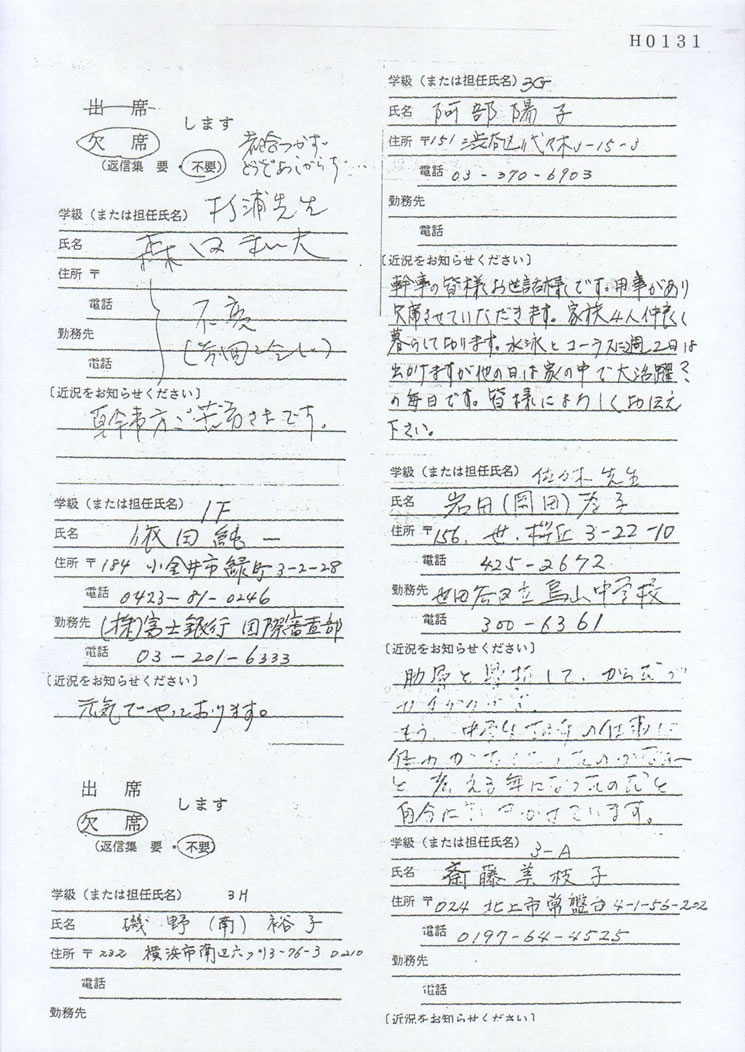 H0131
出席
欠席
します
(返信集 要・不要)
都合つかず
どうぞあしからず
学級(または担任氏名) 杉浦先生
氏名 森田
住所 〒
電話
不変
勤務先
電話
〔近況をお知らせください〕
幹事方ご苦労さまです。
学級(または担任氏名) 1F
氏名 依田純一
住所 〒184 小金井市緑町3-2-28
電話 0423-81-0246
勤務先 (株)富士銀行 国際審査部
電話 03-201-6333
〔近況をお知らせください〕
元気でやっております。
出席
欠席
します
(返信集 要・不要)
学級(または担任氏名) 3H
氏名 磯野(南)裕子
住所 〒232 横浜市南区六ツ川3-76-3 D210
電話
勤務先
学級(または担任氏名) 3G
氏名 阿部陽子
住所 〒151 渋谷区代々木3-15-3
電話 03-370-6903
勤務先
電話
〔近況をお知らせください〕
幹事の皆様お世話様です。用事があり
欠席させていただきます。家族4人仲良く
暮らしております。水泳とコーラスに週2日は
出かけますが他の日は家の中で大活躍?
の毎日です。皆様によろしくお伝え
下さい。
学級(または担任氏名) 佐々木先生
氏名 岩田(岡田)
住所 〒156. 世. 桜丘 3-22-10
電話 425-2672
勤務先 世田谷区立烏山中学校
電話 300-6361
〔近況をお知らせください〕
もう、
の仕事に
と考える年になった
自分に
います。
学級(または担任氏名) 3-A
氏名 斎藤美枝子
住所 〒024 北上市常盤台4-1-56-202
電話 0197-64-4525
勤務先
電話
〔近況をお知らせください〕